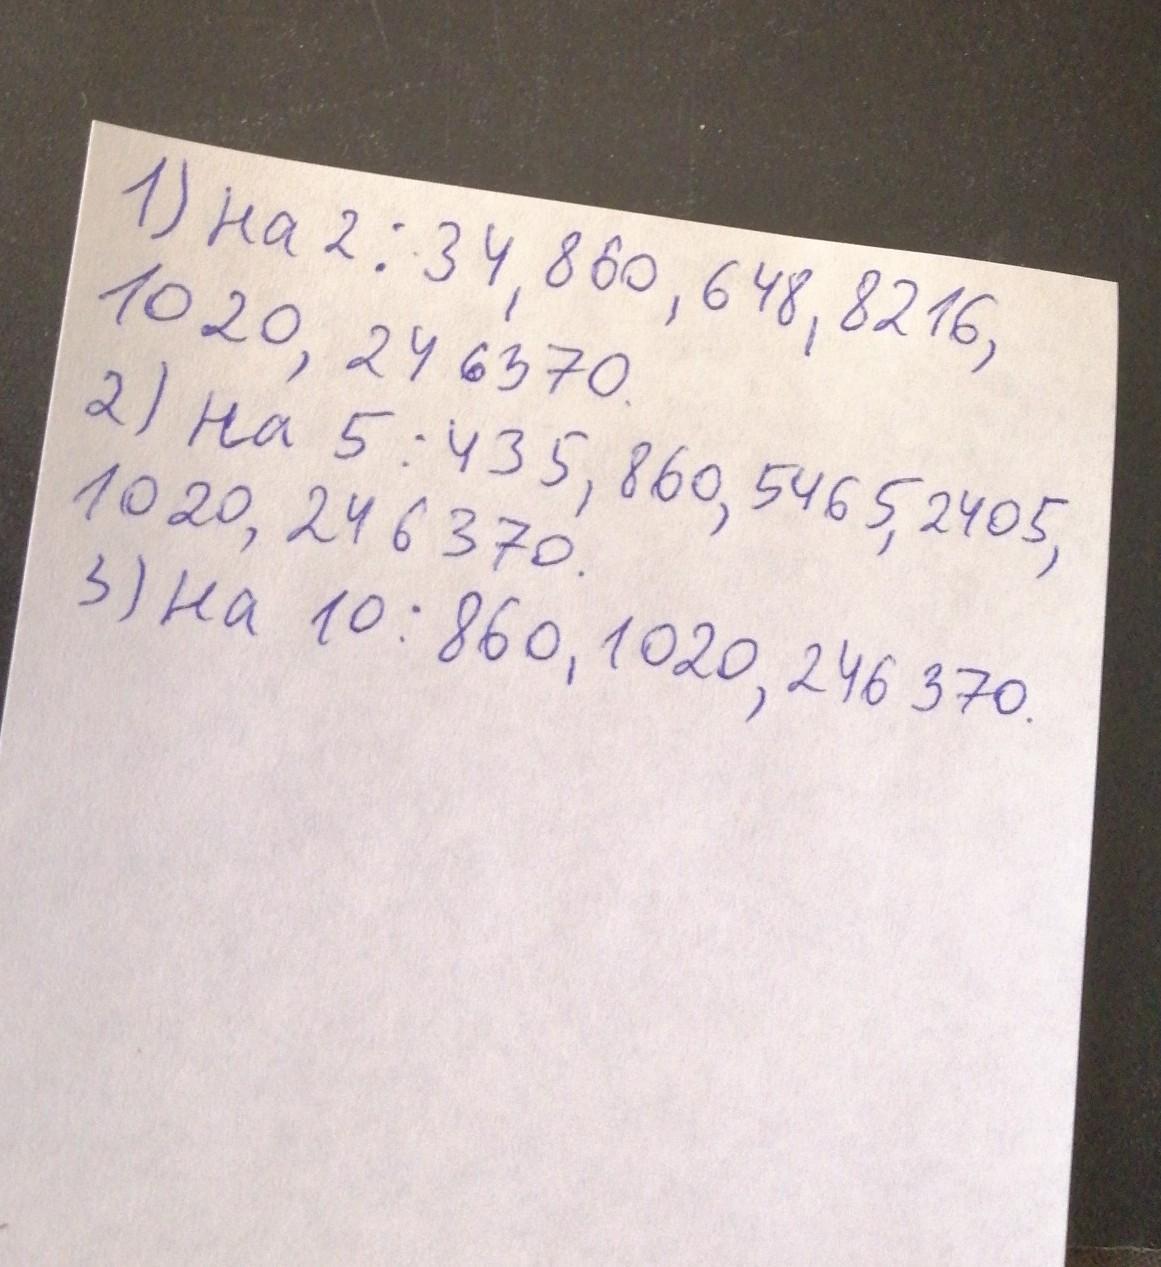 1) на 2: 34, 860, 648, 8216,
1020, 246370.
2) на 5: 435, 860, 5465, 2405,
1020, 246370.
3) на 10: 860, 1020, 246370.